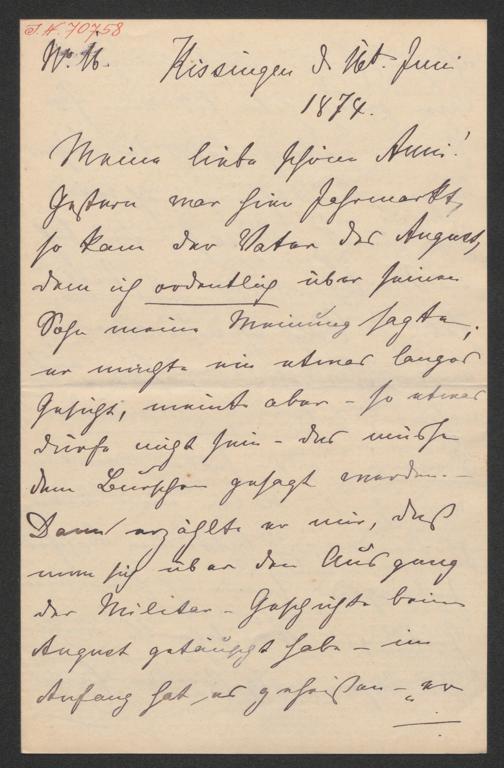 I. N. 70758
Nr. 16. Kissingen d. 16t. Juni
1874.
Meine liebe schöne Anni!
Gestern war hier Jahrmarkt,
so kam der Vater des August,
dem ich ordentlich über seinen
Sohn meine Meinung sagte,
er machte ein etwas langes
Gesicht, meinte aber – so etwas
dürfe nicht sein – das müsse
dem Burschen gesagt werden. –
Dann erzählte er mir, daß
man sich über den Ausgang
der Militär-Geschichte beim
August getäuscht habe – im
Anfang hat es geheißen – „er